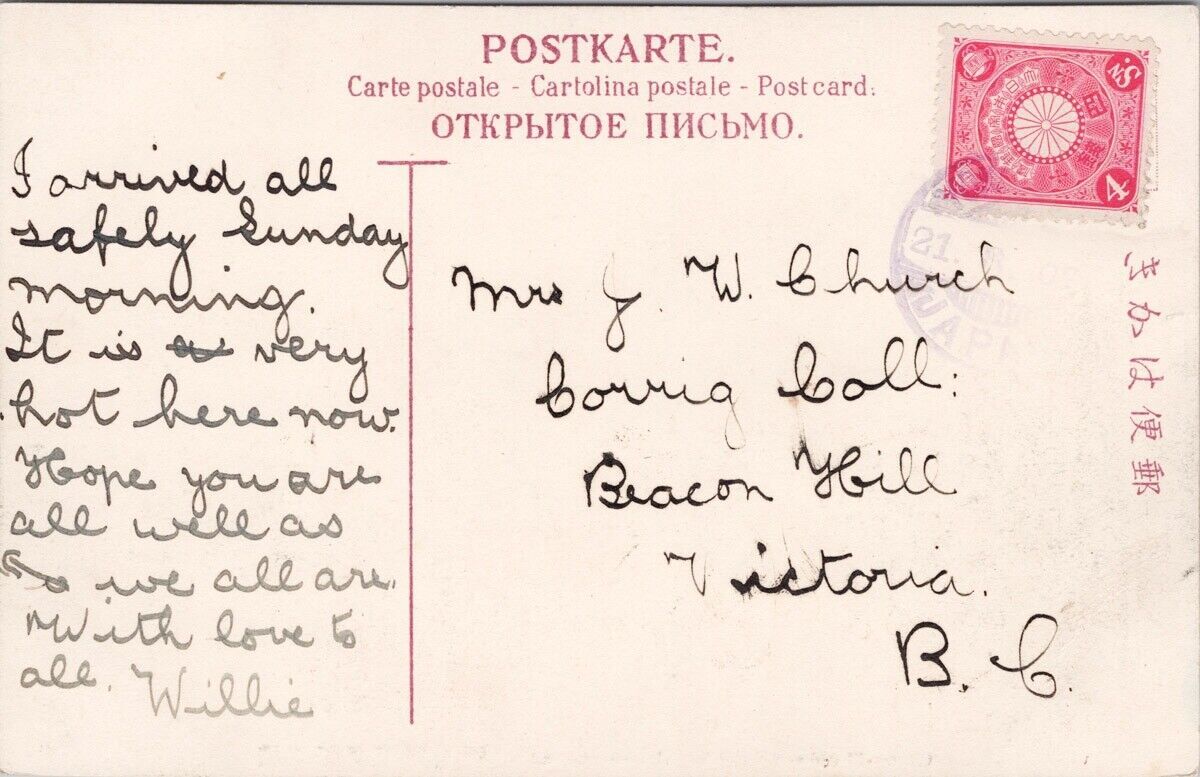 POSTKARTE.
Carte postale - Cartolina postale - Postcard.
ОТКРЫТОЕ ПИСЬМО.
I arrived all
safely Sunday
morning.
It is very
hot here now.
Hope you are
all well as
we all are.
With love to
all. Willie
Mrs J. W. Church
Corrig Coll:
Beacon Hill
Victoria.
B. C.
4 Sn.
21.
JAP
きかは便郵